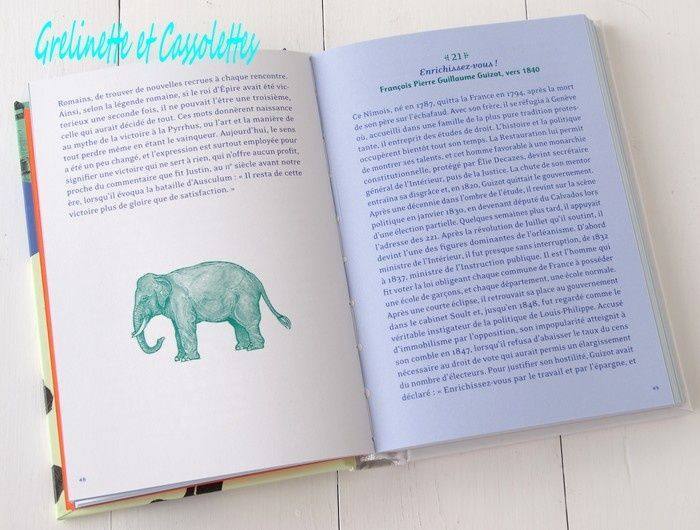 Grelinette et Cassolettes
Romains, de trouver de nouvelles recrues à chaque rencontre.
Ainsi, selon la légende romaine, si le roi d'Épire avait été vic-
torieux une seconde fois, il ne pouvait l'être une troisième,
celle qui aurait décidé de tout. Ces mots donnèrent naissance
au mythe de la victoire à la Pyrrhus, ou l'art et la manière de
tout perdre même en étant le vainqueur. Aujourd'hui, le sens
a été un peu changé, et l'expression est surtout employée pour
signifier une victoire qui ne sert à rien, qui n'offre aucun profit,
proche du commentaire que fit Justin, au IIe siècle avant notre
ère, lorsqu'il évoqua la bataille d'Ausculum : « Il resta de cette
victoire plus de gloire que de satisfaction. »
48
21
Enrichissez-vous !
François Pierre Guillaume Guizot, vers 1840
Ce Nîmois, né en 1787, quitta la France en 1794, après la mort
de son père sur l'échafaud. Avec son frère, il se réfugia à Genève
où, accueilli dans une famille de la plus pure tradition protes-
tante, il entreprit des études de droit. L'histoire et la politique
occupèrent bientôt tout son temps. La Restauration lui permit
de montrer ses talents, et cet homme favorable à une monarchie
constitutionnelle, protégé par Élie Decazes, devint secrétaire
général de l'Intérieur, puis de la Justice. La chute de son mentor
entraîna sa disgrâce et, en 1820, Guizot quittait le gouvernement.
Après une décennie dans l'ombre de l'étude, il revint sur la scène
politique en janvier 1830, en devenant député du Calvados lors
d'une élection partielle. Quelques semaines plus tard, il appuyait
l'adresse des 221. Après la révolution de Juillet qu'il soutint, il
devint l'une des figures dominantes de l'orléanisme. D'abord
ministre de l'Intérieur, il fut presque sans interruption, de 1832
à 1837, ministre de l'Instruction publique. Il est l'homme qui
fit voter la loi obligeant chaque commune de France à posséder
une école de garçons, et chaque département, une école normale.
Après une courte éclipse, il retrouvait sa place au gouvernement
dans le cabinet Soult et, jusqu'en 1848, fut regardé comme le
véritable instigateur de la politique de Louis-Philippe. Accusé
d'immobilisme par l'opposition, son impopularité atteignit à
son comble en 1847, lorsqu'il refusa d'abaisser le taux du cens
nécessaire au droit de vote qui aurait permis un élargissement
du nombre d'électeurs. Pour justifier son hostilité, Guizot avait
déclaré : « Enrichissez-vous par le travail et par l'épargne, et
49